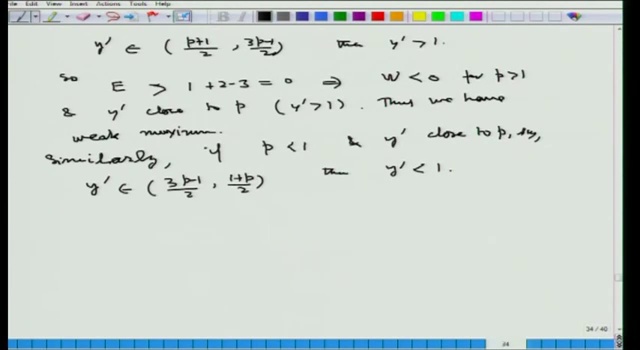 File Edit View Insert Actions Tools Help
y' ∈ ( p+1/2 , 3p-1/2 ) then y' > 1.
So E > 1 + 2 - 3 = 0 ⇒ W < 0 for p > 1
& y' close to p ( y' > 1 ) . Thus we have
weak maximum.
Similarly, if p < 1 & y' close to p, say,
y' ∈ ( 3p-1/2 , 1+p/2 ) then y' < 1.
34 / 40
34